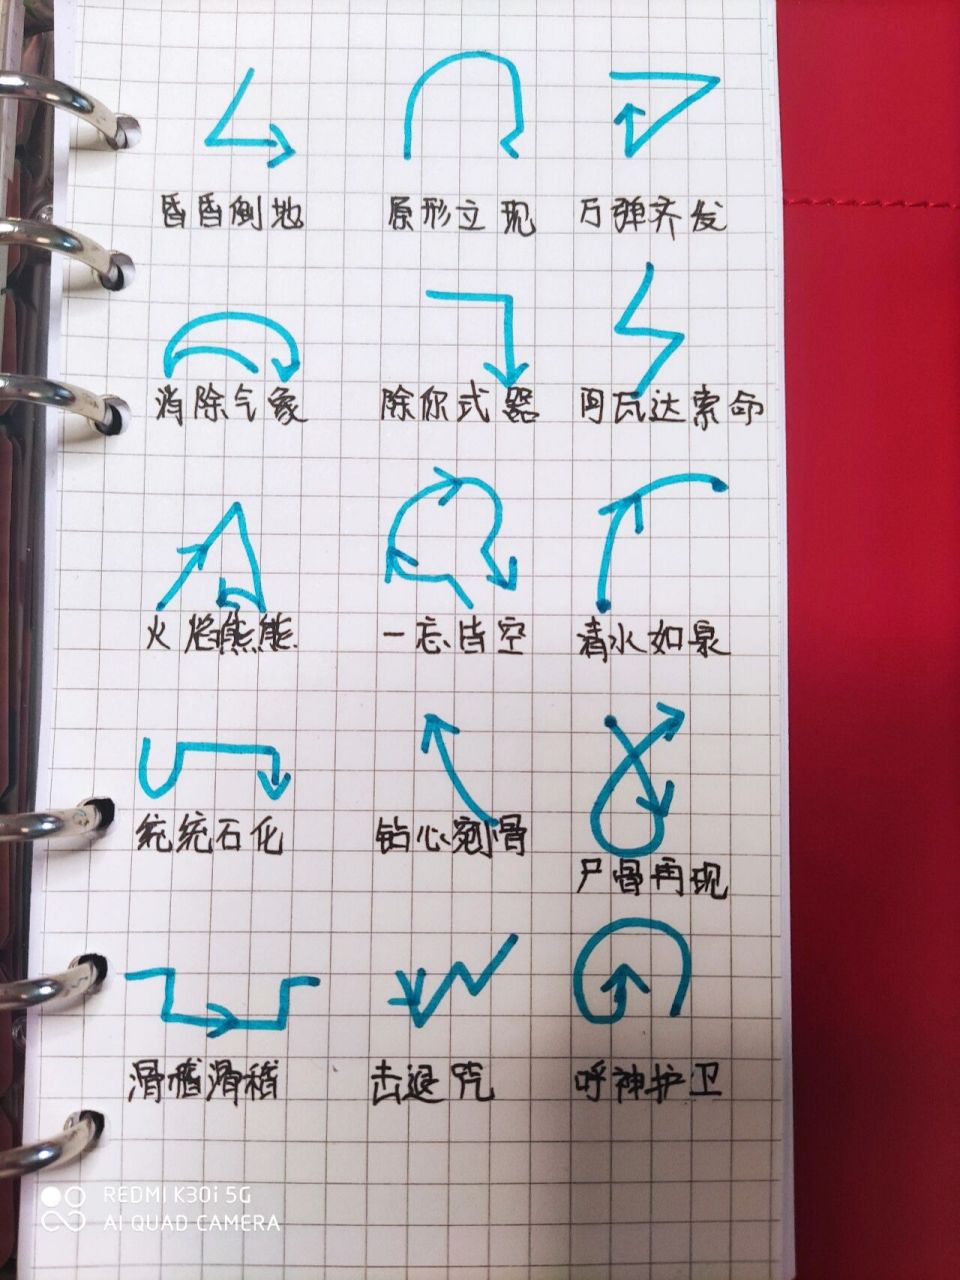 昏昏倒地 原形立现 万弹齐发
消除气象 除你武器 阿瓦达索命
火焰熊熊 一忘皆空 清水如泉
统统石化 钻心剜骨 尸骨再现
滑稽滑稽 击退咒 呼神护卫
REDMI K30i 5G
AI QUAD CAMERA